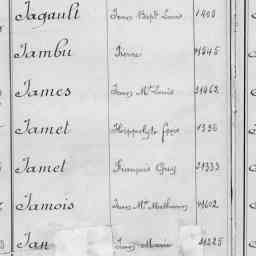 Jagault Jean Bapt Louis 1408
Jambu Pierre 21645
James Jean Me Louis 31462
Jamet Hippolyte 1336
Jamet François 21333
Jamois Jean Me Mathurin 41602
Jan Jean Marie 41225